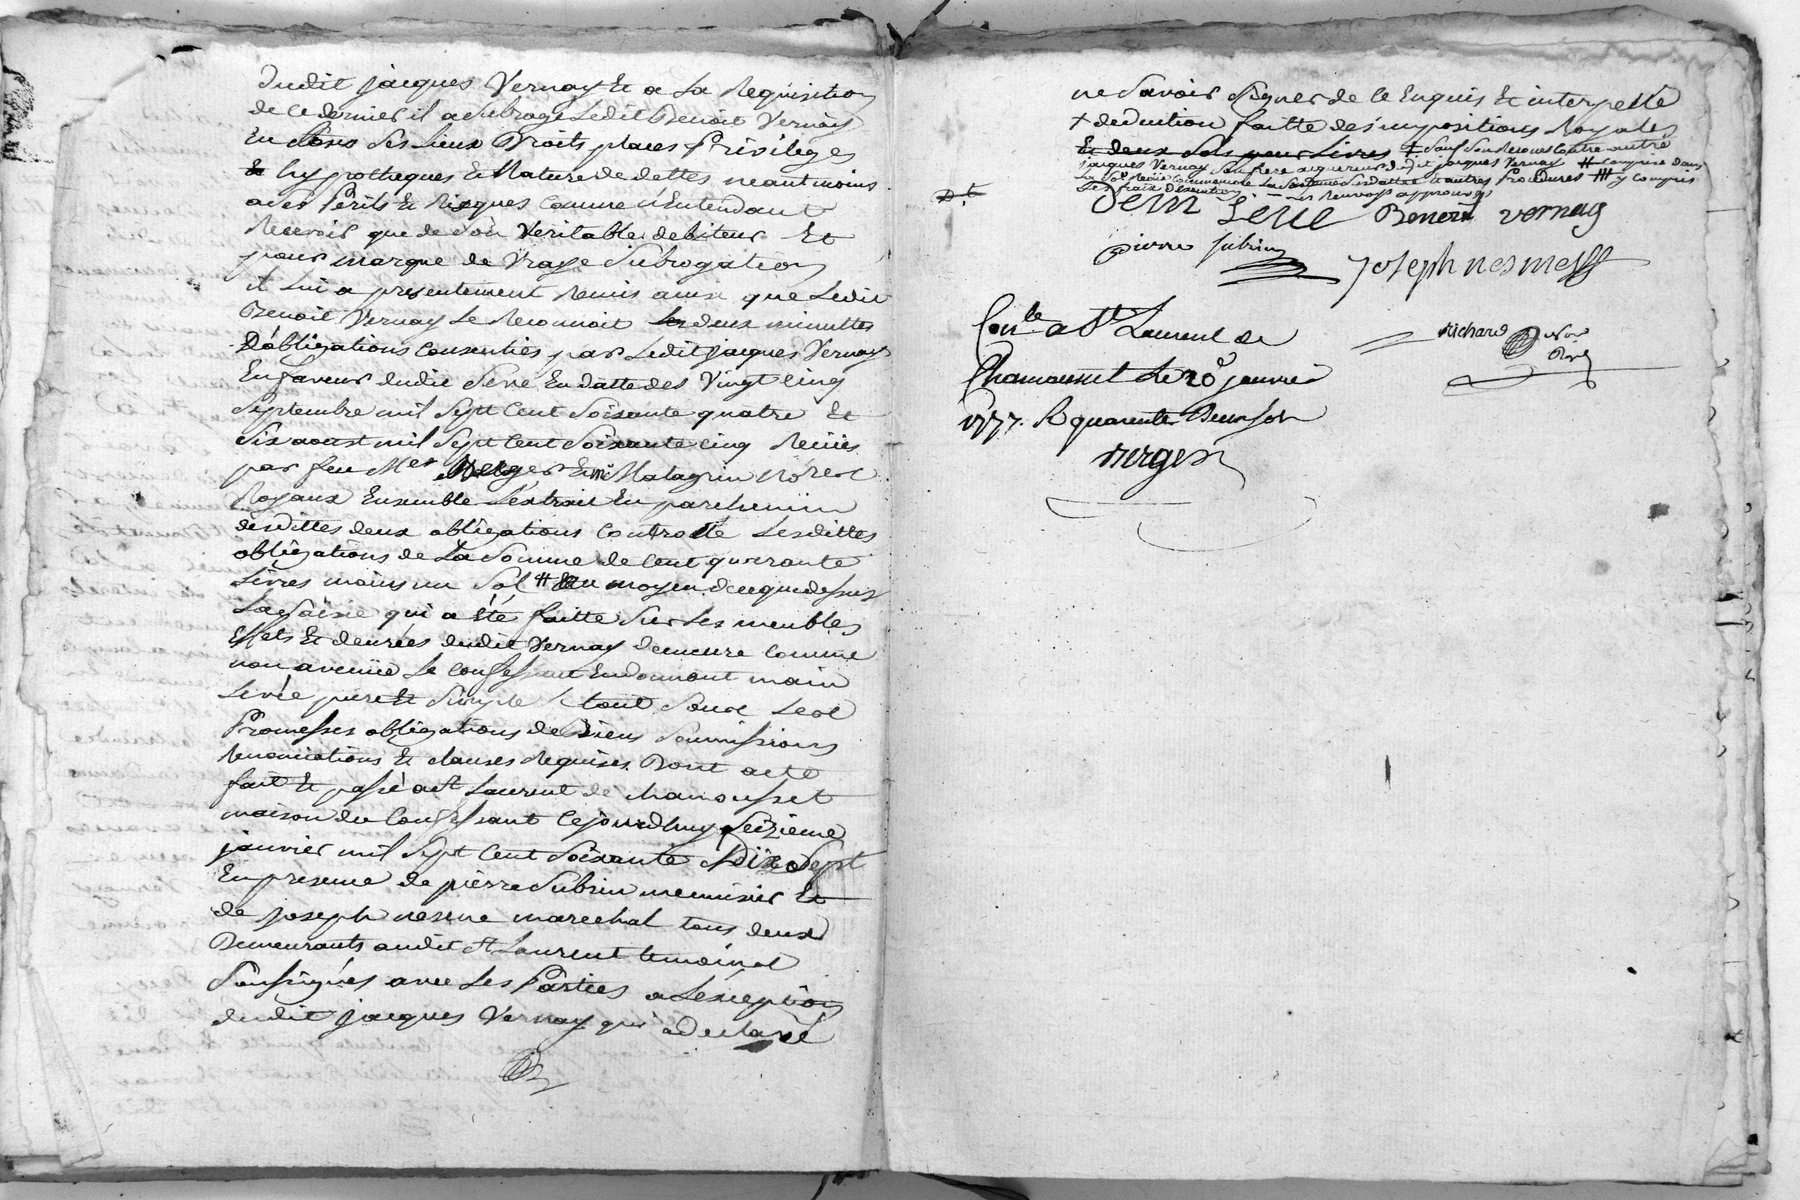 dudit jacques Vernay Et a La Requisition
de ce dernier il a Subrogé Ledit Benoit Vernay
En tous Ses Lieux Droits places Privileges
hypotheques Et Nature de dettes neantmoins
a Ses Perils Et Risques Comme n'Entendant
Recevoir que de Son Veritable debiteur Et
pour marque de Vraye Subrogation
il Lui a presentement Remis ainsi que Ledit
Benoit Vernay Le Reconnoit Les deux minuttes
D'obligations Consenties par Ledit jacques Vernay
En faveur dudit Seve En datte des Vingt Cinq
Septembre mil Sept Cent Soixante quatre Et
Six aoust mil Sept Cent Soixante Cinq Reçües
par feu Mes Berger Et Me Matagrin Nores
Royaux Ensemble L'extrait En parchemin
desdittes deux obligations Controllé Lesdittes
obligations de La Somme de Cent quarante
Livres moins un Sol # au moyen de ce que dessus
La Saisie qui a été faitte Sur Les meubles
Effets Et denrées dudit Vernay demeure Comme
non avenüe Le Confessant En donnant main
Levée pure Et Simple Le tout Sous Les
Promesses obligations de Biens Soumissions
Renonciations Et clauses Requises Dont acte
fait Et passé a St Laurent de chamousset
maison du Confessant Cejourdhuy Seizieme
janvier mil Sept Cent Soixante Dix Sept
En presence de pierre Subrin menuisier Et
de joseph nesme marechal tous deux
Demeurants audit St Laurent temoins
Soussignés avec Les Parties a L'exception
dudit jacques Vernay qui a declaré
ne Savoir Signer de ce Enquis Et interpellé
+ deduction faitte des impositions Royales
Et deux Sols pour Livres ‡ Sauf Son Recours Contre autre
jacques Vernay Son Pere dudit jacques Vernay # Comprise dans
La Somme autres Procedures ### y Compris
Les frais d'Execution Les Renvoys approuvés
D.t
Seve Benoit vernay
pierre subrin
joseph nesme
Conlé a St Laurent de
Chamousset le 20 janvier
1777. R quarente Deux sols
richard Nore
Berger